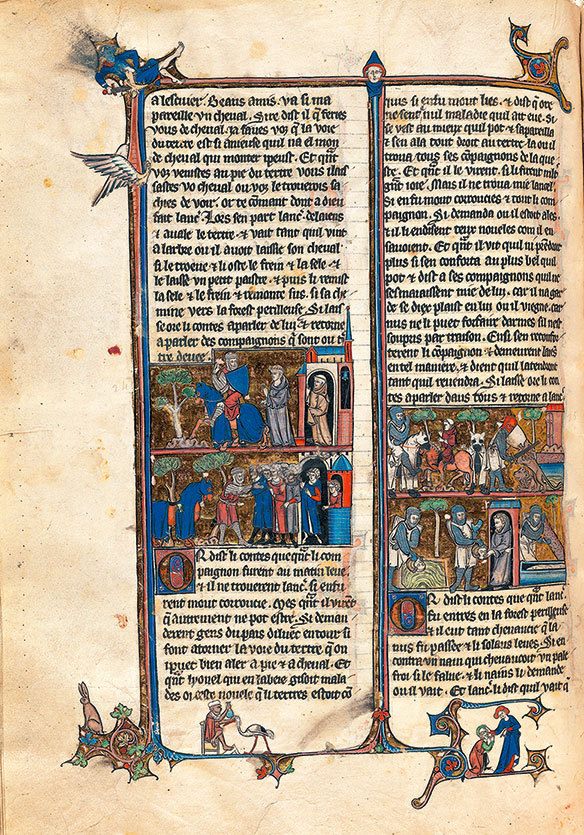 alescuier. Beaus amis. va si ma
pareille vn cheval. Sire dist il q̄ feres
vous de cheval. ia saues voꝯ q̄ la voie
du tertre est si anieuse quil na el mon
de cheval qui monter i peust. Et qn̄t
voꝯ venistes au pie du tertre vous i lais
sastes vo cheval ou voꝯ le trouerois sa
ches de voir. or te cōmant dont a dieu
fait lanc̄. Lors sen part lanc̄. de laiens
⁊ auale le tertre. ⁊ vait tant quil vint
a larbre ou il auoit laisse son cheval
si le troeue ⁊ li oste le frein ⁊ la sele ⁊
le laisse vn petit paistre. ⁊ puis li remist
la sele ⁊ le frein ⁊ remonte sus. si sa che
mine vers la forest perilleuse. Si lais
se ore li contes a parler de luy ⁊ retorne
a parler des compaignons q̄ sont ou t̄
tre deuee.
OR dist li contes que qn̄t li com
paignon furent au matin leue.
⁊ il ne trouerent lanc̄. si en fu
rent mout corroucie. Mes qn̄t il virēt
q̄ autrement ne pot estre. Si deman
derent gens du pais diluec entour si
font atorner la voie du tertre q̄ on
i puet bien aler a pie ⁊ a cheval. Et
qn̄t lyonel qui en labeie gisoit mala
des oi ceste nouele q̄ li tertres estoit cō
nus si en fu mout lies. ⁊ dist q̄ ore
ne sent nul maladie quil ait eue. Si
se vest au mieux quil pot ⁊ sapareilla
⁊ sen ala tout droit au tertre. la ou il
troua tous ses cōpaignons de la que
ste. Et qn̄t il le virent. si li firent mlt̄
grn̄t ioie. Mais il ne troua mie lanc̄.
Si en fu mout corroucies ⁊ tout li com
paignon. Si demanda ou il estoit ales
⁊ il li en disent teux noueles com il en
sauoient. Et qn̄t il vit quil ni pēdroit
plus si sen conforta au plus bel quil
pot ⁊ dist a ses compaignons quil ne
sesmaiassent mie de luy. car il na gar
de se diex plaist en lieu ou il viegne. car
nus ne li puet forfaire darmes sil nest
soupris par traison. Ensi sen reconfor
terent li cōpaignon ⁊ demeurent laiēs
en tel maniere. ⁊ dient quil latendront
tant quil reuendra. Si laisse ore li con
tes a parler daus tous ⁊ retorne a lanc̄.
OR dist li contes que qn̄t lanc̄.
fu entres en la forest perilleuse
⁊ il eut tant cheuaucie q̄ la
nuis fu passee ⁊ li solaus leues. Si en
contra vn nain qui cheuaucoit vn pale
froi si le salue. ⁊ li nains li demande
ou il vait. Et lanc̄. li dist quil vait q̄